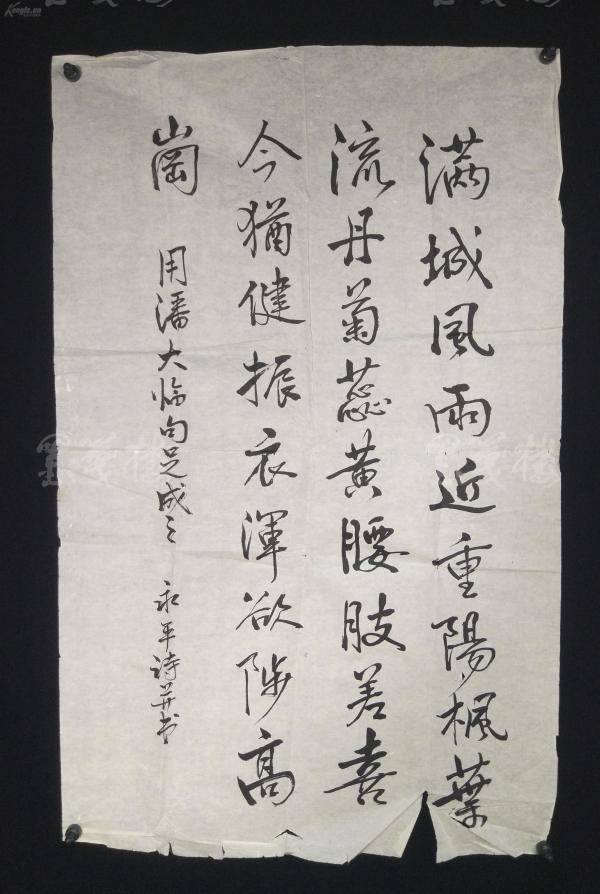 满城風雨近重陽楓葉
流丹菊蕊黄腰肢差喜
今猶健振衣渾欲陟高
崗
用潘大临句足成之
永平詩并书
Kongfz.cn